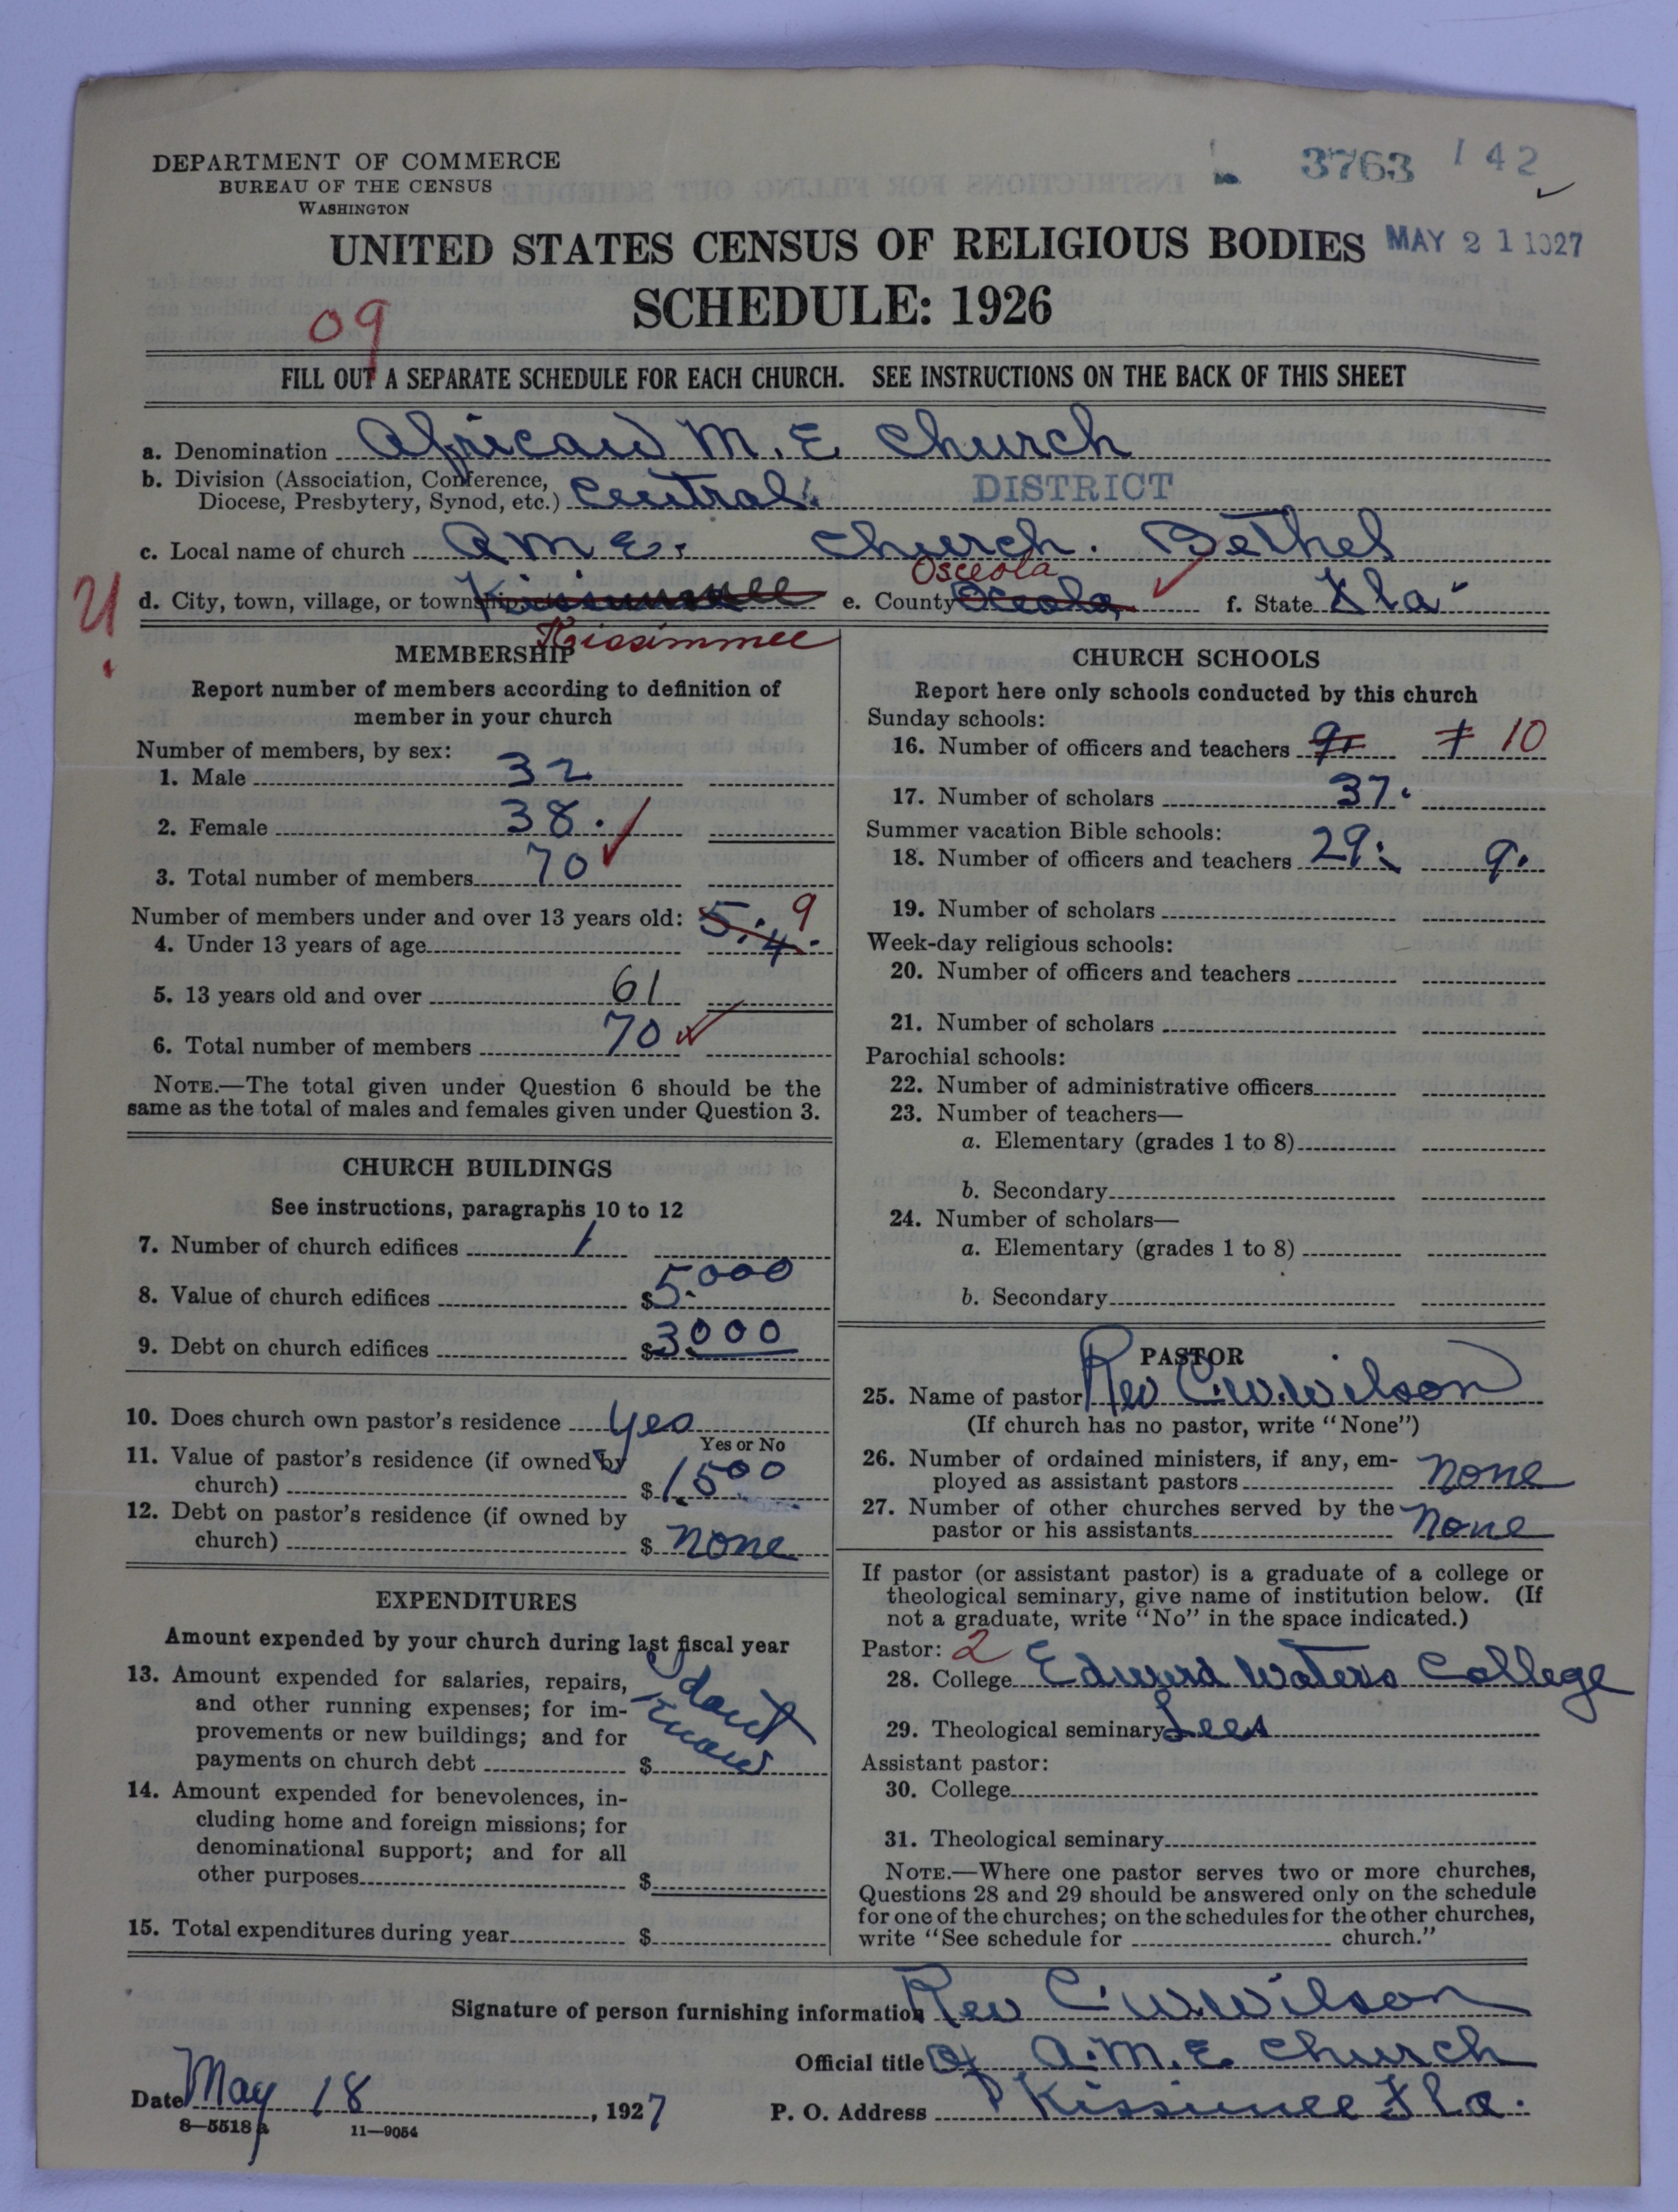 DEPARTMENT OF COMMERCE
BUREAU OF THE CENSUS
WASHINGTON
3763 142
UNITED STATES CENSUS OF RELIGIOUS BODIES
MAY 21 1927
SCHEDULE: 1926
09
FILL OUT A SEPARATE SCHEDULE FOR EACH CHURCH. SEE INSTRUCTIONS ON THE BACK OF THIS SHEET
a. Denomination African M. E Church
b. Division (Association, Conference,
Diocese, Presbytery, Synod, etc.) Central. DISTRICT
c. Local name of church A M E. Church. Bethel
Osceola
d. City, town, village, or township, etc. e. County Oceola f. State Fla
Kissimmee
MEMBERSHIP
Report number of members according to definition of
member in your church
Number of members, by sex:
1. Male 32
2. Female 38.
3. Total number of members 70
Number of members under and over 13 years old: 5. 9
4. Under 13 years of age 4.
5. 13 years old and over 61
6. Total number of members 70
NOTE.—The total given under Question 6 should be the
same as the total of males and females given under Question 3.
CHURCH BUILDINGS
See instructions, paragraphs 10 to 12
7. Number of church edifices 1
8. Value of church edifices $5.000
9. Debt on church edifices $3000
10. Does church own pastor's residence yes
Yes or No
11. Value of pastor's residence (if owned by
church) $1.500
12. Debt on pastor's residence (if owned by
church) $ none
EXPENDITURES
Amount expended by your church during last fiscal year
13. Amount expended for salaries, repairs,
and other running expenses; for im-
provements or new buildings; and for
payments on church debt $
dont
know
14. Amount expended for benevolences, in-
cluding home and foreign missions; for
denominational support; and for all
other purposes $
15. Total expenditures during year $
CHURCH SCHOOLS
Report here only schools conducted by this church
Sunday schools:
16. Number of officers and teachers 9. 10
17. Number of scholars 37.
Summer vacation Bible schools:
18. Number of officers and teachers 29. 9.
19. Number of scholars
Week-day religious schools:
20. Number of officers and teachers
21. Number of scholars
Parochial schools:
22. Number of administrative officers
23. Number of teachers—
a. Elementary (grades 1 to 8)
b. Secondary
24. Number of scholars—
a. Elementary (grades 1 to 8)
b. Secondary
PASTOR
25. Name of pastor Rev C. W. Wilson
(If church has no pastor, write "None")
26. Number of ordained ministers, if any, em-
ployed as assistant pastors none
27. Number of other churches served by the
pastor or his assistants none
If pastor (or assistant pastor) is a graduate of a college or
theological seminary, give name of institution below. (If
not a graduate, write "No" in the space indicated.)
Pastor: 2
28. College Edward Waters College
29. Theological seminary Lees
Assistant pastor:
30. College
31. Theological seminary
NOTE.—Where one pastor serves two or more churches,
Questions 28 and 29 should be answered only on the schedule
for one of the churches; on the schedules for the other churches,
write "See schedule for church."
Signature of person furnishing information Rev C. W. Wilson
Official title Of A. M. E Church
Date May 18, 1927 P. O. Address Kissimee Fla.
8—5518 a 11—9054